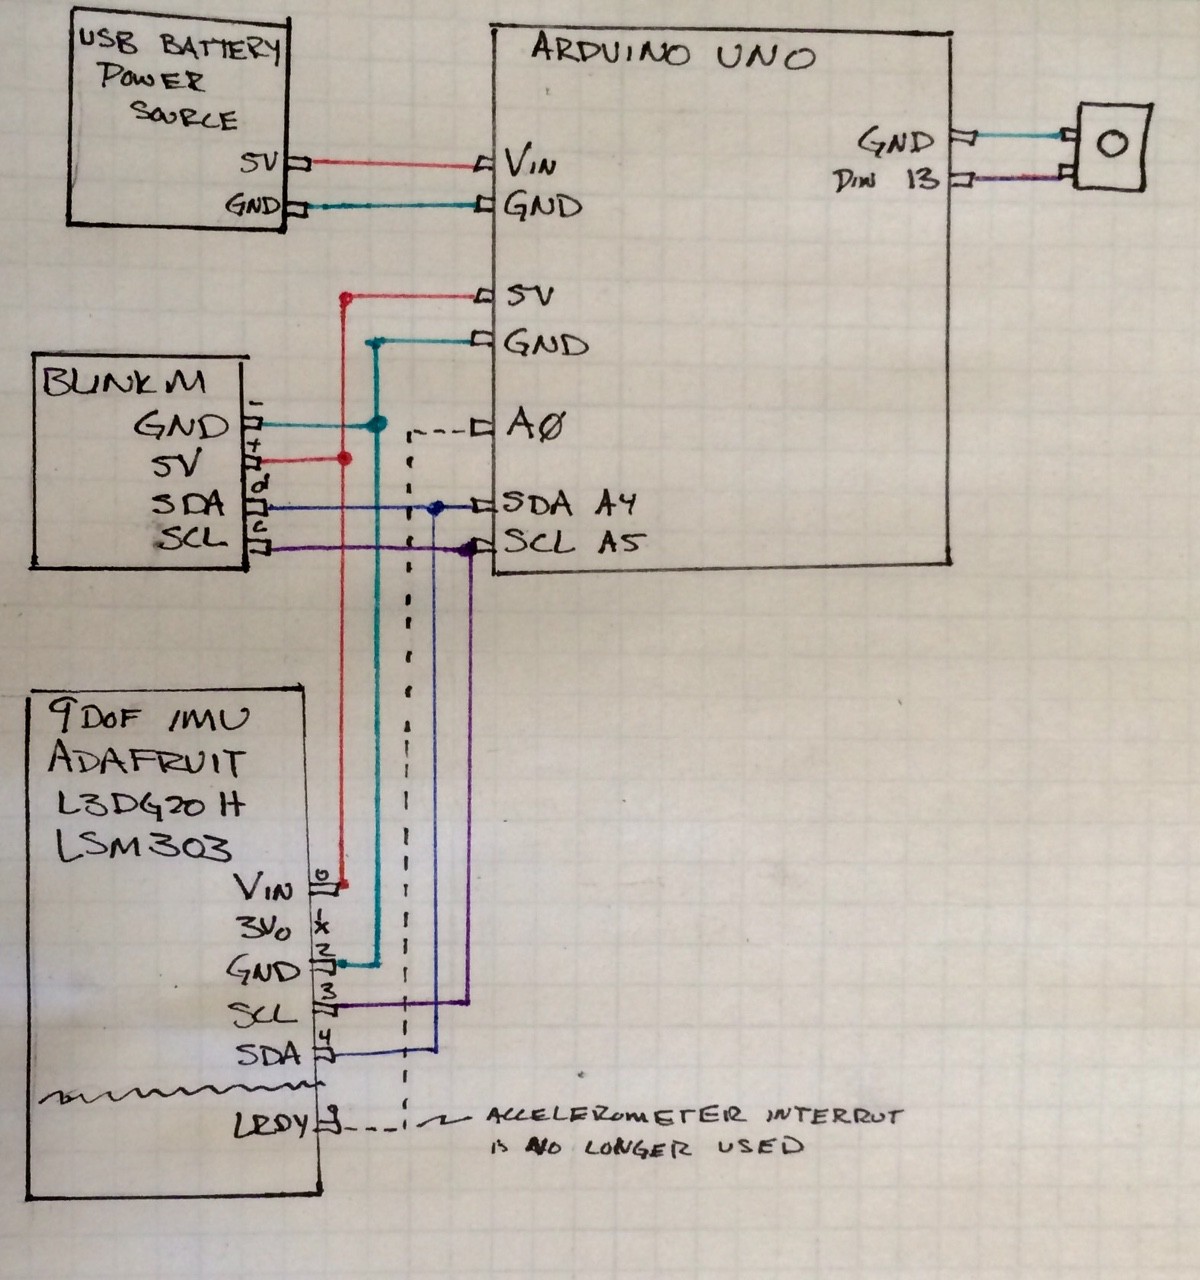 USB BATTERY
POWER
SOURCE
5V
GND
ARDUINO UNO
VIN
GND
5V
GND
AØ
SDA A4
SCL A5
GND
DIN 13
BLINKM
GND -
5V +
SDA d
SCL c
9DOF IMU
ADAFRUIT
L3DG20H
LSM303
VIN 0
3Vo 1
GND 2
SCL 3
SDA 4
LRDY 9
ACCELEROMETER INTERRUT
IS NO LONGER USED